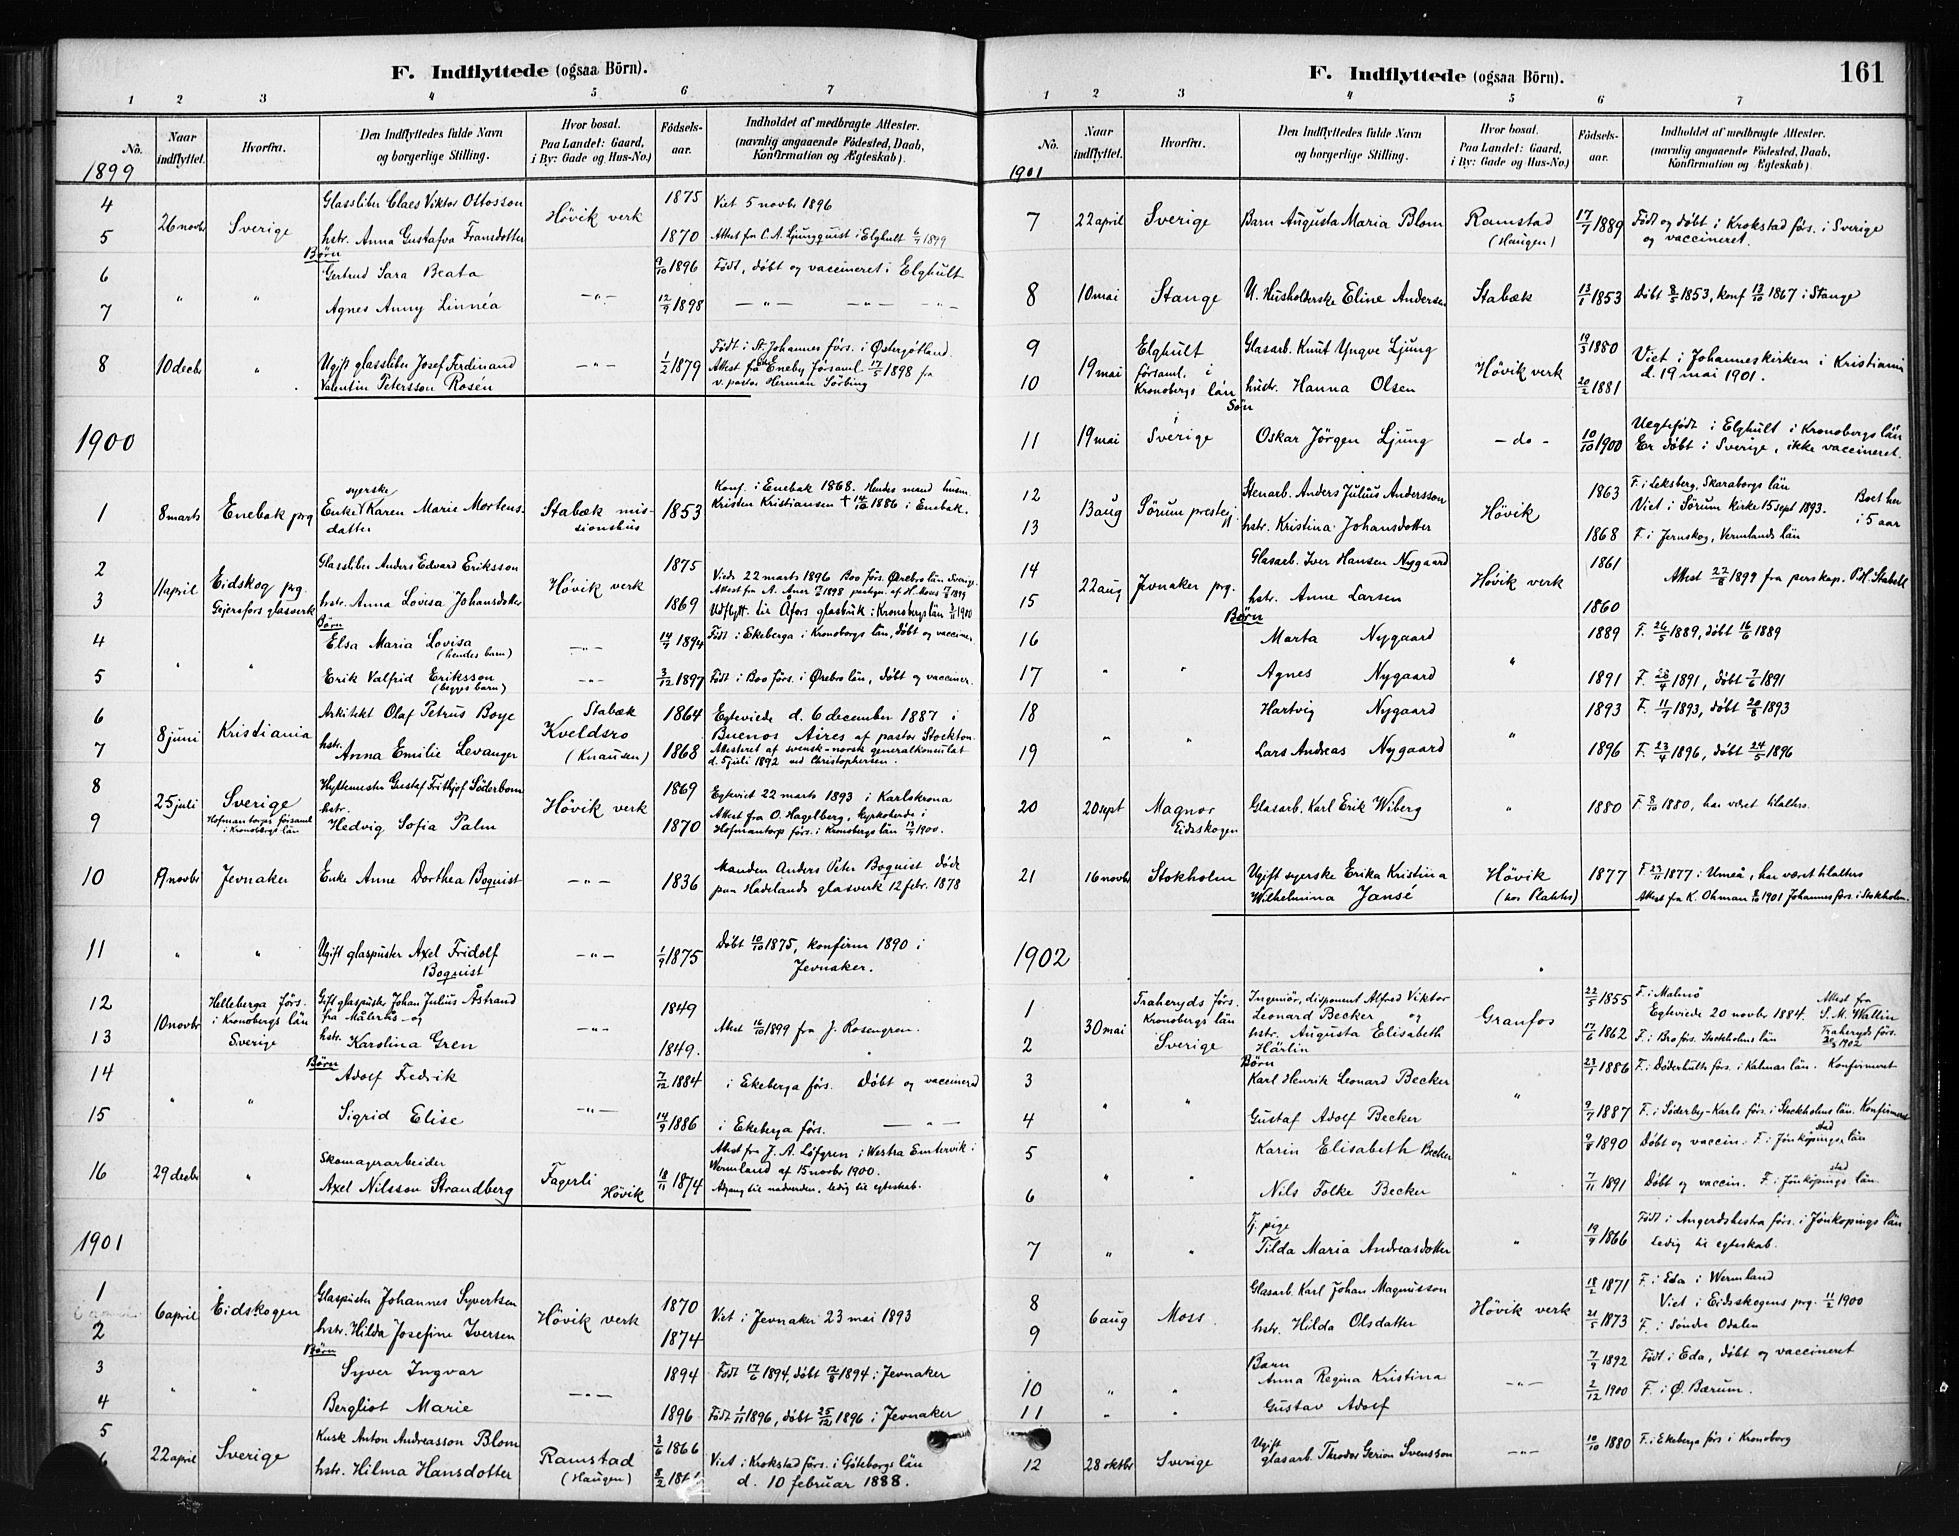 F. Indflyttede (ogsaa Börn).
1 2 3 4 5 6 7
No.
Naar indflyttet.
Hvorfra.
Den Indflyttedes fulde Navn og borgerlige Stilling.
Hvor bosat. Paa Landet: Gaard, i By: Gade og Hus-No.)
Födsels-aar.
Indholdet af medbragte Attester. (navnlig angaaende Födested, Daab, Konfirmation og Ægteskab).
1899
4 Glassliber Claes Viktor Ottosson 1875 Viet 5 novbr 1896
5 26 novbr Sverige hstr. Anna Gustafva Fransdotter Hövik verk 1870 Attest fra C. A. Ljungquist i Elghult 1899
Børn
6 Gertrud Sara Beata 9/10 1896 Född, døbt og vaccineret i Elghult
7 " " Agnes Anny Linnéa -"- 12/9 1898 -"- -"- -"-
8 10 decbr " Ugift glassliber Josef Ferdinand Valentin Petersson Rosén -"- 1/2 1879 Født i St. Johannes förs. i Østergötland.
Attest fra Eneby församl. 17/5 1898 fra
v. pastor Herman Sörbing
1900
1 8 marts Enebak prg syerske Enke Karen Marie Mortensdatter Stabæk missionshus 1853 Konf. i Enebak 1868. Hendes mand husm.
Kristen Kristiansen † 14/10 1886 i Enebak.
2 Glassliber Anders Edvard Eriksson 1875 Viede 22 marts 1896 Boo förs. Örebro län Sverige.
3 11 april Eidskog prg. Gejersfors glasverk hstr. Anna Lovisa Johansdotter Hövik verk 1869
Udflytt. til Åfors glasbruk i Kronobergs län 1900
Børn
4 Elsa Maria Lovisa (hendes barn) -"- 14/9 1894 Född i Ekeberga i Kronobergs län, døbt og vacciner.
5 " " Erik Valfrid Eriksson (begges barn) -"- 3/12 1897 Född i Boo förs. i Örebro län, døbt og vacciner.
6 Arkitekt Olaf Petrus Boye Stabæk 1864 Egteviede d. 6 december 1887 i
7 8 juni Kristiania hstr. Anna Emilie Levanger Kveldsro (Knausen) 1868 Buenos Aires af pastor Stockton.
Attesteret af svensk-norsk generalkonsulat
d. 5 juli 1892 ved Christophersen.
8 Hyttemester Gustaf Frithjof Söderbom 1869 Egteviet 22 marts 1893 i Karlskrona
9 25 juli Sverige Hofmantorps församl. i Kronobergs län hstr. Hedvig Sofia Palm Hövik verk 1870 Attest fra O. Hagelberg, kyrkoherde i
Hofmantorp förs. i Kronobergs län 1900.
10 19 novbr Jevnaker Enke Anne Dorthea Boquist -"- 1836 Manden Anders Peter Boquist døde
paa Hadelands glasverk 12 febr. 1878
11 " " Ugift glaspuster Axel Fridolf Boquist -"- 1/9 1875 Døbt 10/10 1875, konfirm 1890 i
Jevnaker.
12 Helleberga förs. Gift glaspuster Johan Julius Åstrand fra Målerås og 1849
13 10 novbr i Kronobergs län Sverige hstr. Karolina Gren -"- 1849. Attest 16/10 1899 fra J. Rosengren.
Børn
14 Adolf Fredrik 7/12 1884 i Ekeberga förs. Døbt og vaccinerd
15 " " Sigrid Elise -"- 14/9 1886 i Ekeberga förs. -"-
16 29 decbr " Skomagerarbeider Axel Nilsson Strandberg Fagerli Hövik 18/11 1874 Attest fra J. A. Löfgren i Westra Emtervik i
Wermland af 15 novbr 1900.
Adgang til nadverden, ledig til egteskab.
1901
1 6 april Eidskogen Glaspuster Johannes Syvertsen Hövik verk 1870 Viet i Jevnaker 23 mai 1893
2 hstr. Hilda Josefine Iversen 1874
Børn
3 Syver Ingvar 1894 Födt 17/6 1894, döbt 12/8 1894 i Jevnaker
4 " " Bergliot Marie -"- 1896 Födt 1/11 1896, döbt 25/12 1896 i Jevnaker
5 Kusk Anton Andreasson Blom 3/6 1866
22 april Sverige hstr. Hilma Hansdotter Ramstad (Haugen) Viet i Krokstad förs. i Göteborgs län
d. 10 februar 1888.
F. Indflyttede (ogsaa Börn). 161
1 2 3 4 5 6 7
No.
Naar indflyttet.
Hvorfra.
Den Indflyttedes fulde Navn og borgerlige Stilling.
Hvor bosat. Paa Landet: Gaard, i By: Gade og Hus-No)
Födsels-aar.
Indholdet af medbragte Attester. (navnlig angaaende Födested, Daab, Konfirmation og Ægteskab)
1901
7 22 april Sverige Barn Augusta Maria Blom Ramstad (Haugen) 17/7 1889 Född og döbt i Krokstad förs. i Sverige
og vaccineret.
8 10 mai Stange U. Husholderske Eline Andersen Stabæk 13/1 1853 Døbt 8/5 1853, konf 13/10 1867 i Stange
9 Elghult Glasarb. Knut Yngve Ljung 19/3 1880
10 19 mai församl. i Kronobergs län hustr. Hanna Olsen Hövik verk 20/2 1881 Viet i Johanneskirken i Kristiania
d. 19 mai 1901.
Søn
11 19 mai Sverige Oskar Jörgen Ljung -do- 10/10 1900 Uegtefödt i Elghult i Kronobergs län
Er döbt i Sverige, ikke vaccineret.
12 Stenarb. Anders Julius Andersson 1863 F. i Leksberg, Skaraborgs län
13 13 aug Sørum prestegj. hstr. Kristina Johansdotter Hövik 1868 Viet i Sörum kirke 15 sept 1893. Boet her i 5 aar
F. i Jernskog, Vermlands län
14 Glasarb. Iver Hansen Nygaard 1861
15 22 aug Jevnaker prg. hstr. Anne Larsen Hövik verk 1860 Attest 22/8 1899 fra perskap. P.H. Stabell
Børn
16 Marta Nygaard 1889 F. 26/5 1889, døbt 16/6 1889
17 " " Agnes Nygaard " 1891 F. 28/4 1891, døbt 7/6 1891
18 Hartvig Nygaard 1893 F. 11/7 1893, døbt 20/8 1893
19 " " Lars Andreas Nygaard " 1896 F. 23/4 1896, døbt 24/5 1896
20 20 sept Magnor Eidskogen Glasarb. Karl Erik Wiberg " 1880 F. 8/10 1880, har været tilalters.
21 16 novbr Stokholm Ugift syerske Erika Kristina Wilhelmina Jansé Hövik 1877 F 23/11 1877 i Umeå, har været tilalters
Attest fra K. Ohman 1901 Johannes förs. i Stokholm.
1902
1 Traheryds förs. Ingeniör, disponent Alfred Viktor Leonard Becker og 22/5 1855 F. i Malmö
30 mai Kronobergs län Sverige Granfos Egteviede 20 novbr 1884. Attest fra S. M. Wallin Traheryds förs. 1902
2 hstr. Augusta Elisabeth Härlin 17/6 1862 F. i Bro förs. Stockholms län
Børn
3 Karl Henrik Leonard Becker 23/1 1886 F. i Döderhults förs. i Kalmar län. Konfirmeret
4 " " Gustaf Adolf Becker " 9/7 1887 F. i Söderby-Karls förs. i Stockholms län. Konfirmeret
5 Karin Elisabeth Becker 1890 Døbt og vaccin. F. i Jönköpings stad län
6 " " Nils Folke Becker " 7/11 1891 Døbt og vaccin. F. i Jönköpings stad län.
7 " " Tj. pige Tilda Maria Andreasdotter " 19/9 1866 Födt i Angerdshestra förs. i Jönkopings län
ledig til egteskab.
8 Glasarb. Karl Johan Magnusson 18/2 1871 F. i Eda i Wermland
6 aug Moss Hövik verk Viet i Eidsskogens prg. 11/2 1900
9 hstr. Hilda Olsdatter 21/5 1873 F. i Söndre Odalen
Barn
10 " " Anna Regina Kristina -"- 7/9 1892 Födt i Eda, døbt og vaccineret
11 " " Gustav Adolf 2/12 1900 F. i Ø. Bærum.
12 28 oktbr Sverige Ugift glasarb. Thodor Gerion Svensson -"- 10/10 1880 F. i Ekeberga förs i Kronoborg